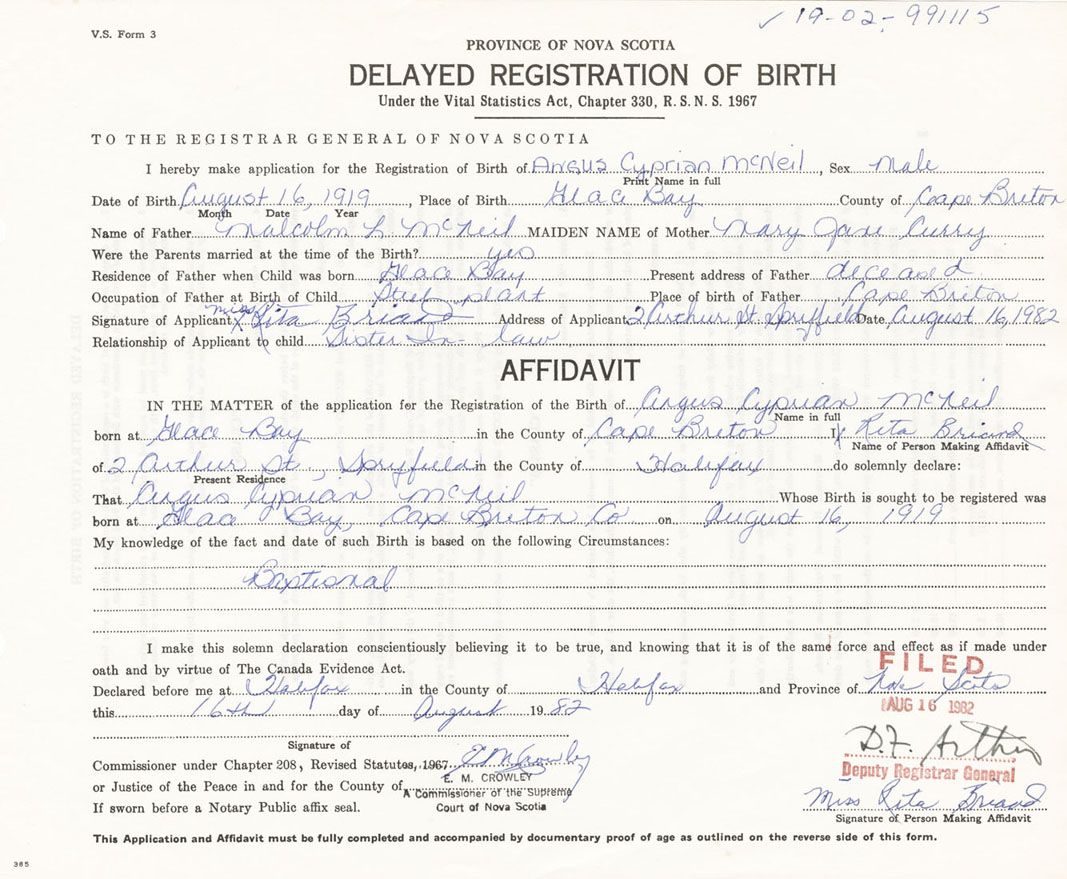 ✓ 19-02-991115
V.S. Form 3
PROVINCE OF NOVA SCOTIA
DELAYED REGISTRATION OF BIRTH
Under the Vital Statistics Act, Chapter 330, R.S.N.S. 1967
TO THE REGISTRAR GENERAL OF NOVA SCOTIA
I hereby make application for the Registration of Birth of Angus Cyprian McNeil, Sex Male
Print Name in full
Date of Birth August 16, 1919, Place of Birth Glace Bay County of Cape Breton
Month Date Year
Name of Father Malcolm L. McNeil MAIDEN NAME of Mother Mary Jane Curry
Were the Parents married at the time of the Birth? yes
Residence of Father when Child was born Glace Bay Present address of Father deceased
Occupation of Father at Birth of Child Steel plant Place of birth of Father Cape Briton
Signature of Applicant x Miss Rita Briand Address of Applicant 2 Arthur St. Spryfield Date August 16, 1982
Relationship of Applicant to child Sister In-law
AFFIDAVIT
IN THE MATTER of the application for the Registration of the Birth of Angus Cyprian McNeil
Name in full
born at Glace Bay in the County of Cape Breton I, Rita Briand
Name of Person Making Affidavit
of 2 Arthur St., Spryfield in the County of Halifax do solemnly declare:
Present Residence
That Angus Cyprian McNeil Whose Birth is sought to be registered was
born at Glace Bay, Cape Breton Co on August 16, 1919
My knowledge of the fact and date of such Birth is based on the following Circumstances:
Baptional
I make this solemn declaration conscientiously believing it to be true, and knowing that it is of the same force and effect as if made under
oath and by virtue of The Canada Evidence Act.
FILED
Declared before me at Halifax in the County of Halifax and Province of Nova Scota
this 16th day of August 1982
AUG 16 1982
Signature of
Commissioner under Chapter 208, Revised Statutes, 1967 E M Crowley
D.F. Arthur
Deputy Registrar General
or Justice of the Peace in and for the County of
E. M. CROWLEY
A Commissioner of the Supreme
Court of Nova Scotia
If sworn before a Notary Public affix seal.
Miss Rita Briand
Signature of Person Making Affidavit
This Application and Affidavit must be fully completed and accompanied by documentary proof of age as outlined on the reverse side of this form.
385